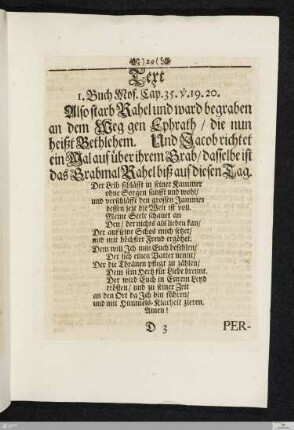 )29(
Text
1. Buch Mos. Cap. 35. v. 19. 20.
Also starb Rahel und ward begraben
an dem Weg gen Ephrath / die nun
heißt Bethlehem. Und Jacob richtet
ein Mal auf über ihrem Grab / dasselbe ist
das Grabmal Rahel biß auf diesen Tag.
Der Leib schläfft in seiner Kammer
ohne Sorgen sanfft und wohl /
und verschläfft den grossen Jammer
dessen jetzt die Welt ist voll.
Meine Seele schauet an
Den / der nichts als lieben kan /
Der auf seine Schos mich setzet /
und mit höchster Freud ergötzet.
Dem will Ich nun Euch befehlen /
Der sich einen Vatter nennt /
Der die Thränen pflegt zu zählen /
Dem sein Hertz für Liebe brennt.
Der wird Euch in Eurem Leyd
trösten / und zu seiner Zeit
an den Ort da Ich bin führen /
und mit Himmels-Klarheit zieren.
Amen!
D 3 PER-